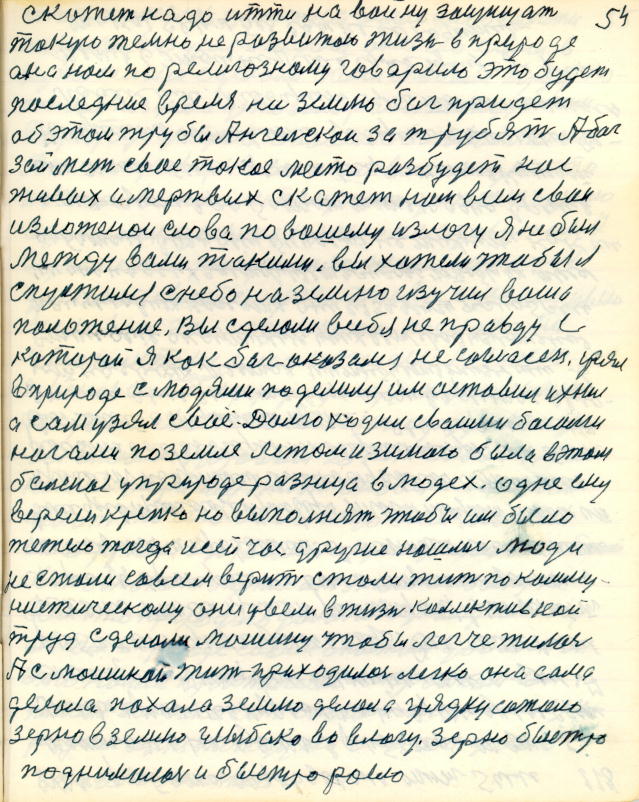 скажет надо итти на войну защищат 54
такую темно не развитою жизн в природе
она нам по религозному говарила это будет
последние время на землю бог придет
об этом трубы Ангелской затрубят А бог
займет свое такое место разбудет нас
живых и мертвых скажет нам всем свои
изложеной слова по вашему излогу я не был
между вами такими. вы хотели чтобы я
спустился с неба на землю изучил ваше
положение, Вы сделали в себя не правду с
каторай я как бог оказался не согласен, узял
в природе с людями поделился им оставил ихнии
а сам узял своё. Долго ходил своими босыми
ногами по земле летом и зимою была в этом
болшая у природе разница в людех. одне ему
верели крепко но выполнят чтобы им было
тежело тогда и сей час другие нашлис люди
не стали совсем верит стали жит по комму-
нистическому они увели в жизн колективной
труд сделали машину чтобы легче жилос
А с машиной жит приходилос легко она сама
делала пахала землю делала грядку сажало
зерно в землю глыбако во влогу, зерно быстро
поднималос и быстро росло